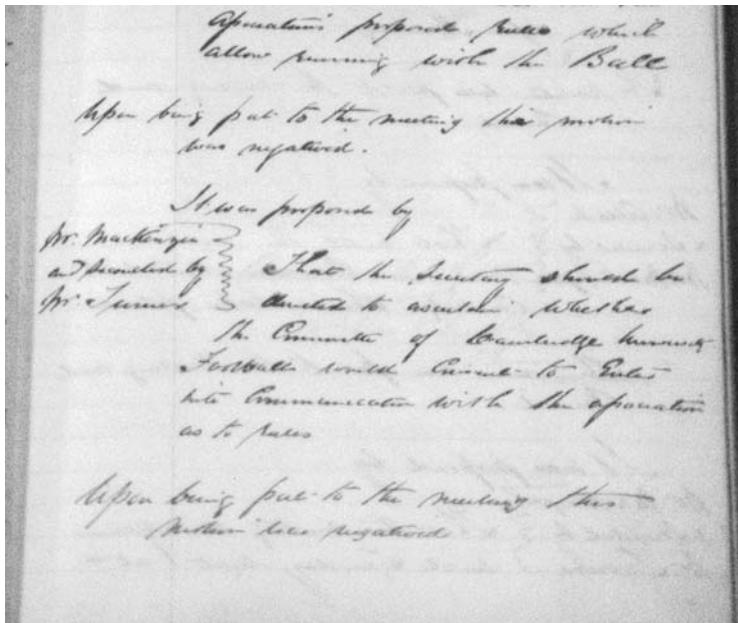 Association's proposed rules which
allow running with the Ball
Upon being put to the meeting this motion
was negatived.
It was proposed by
Mr. Mackenzie
and seconded by
Mr. Turner
That the Secretary should be
directed to ascertain whether
the Committee of Cambridge University
Football would Consent to Enter
into Communication with the association
as to rules
Upon being put to the meeting this
motion was negatived